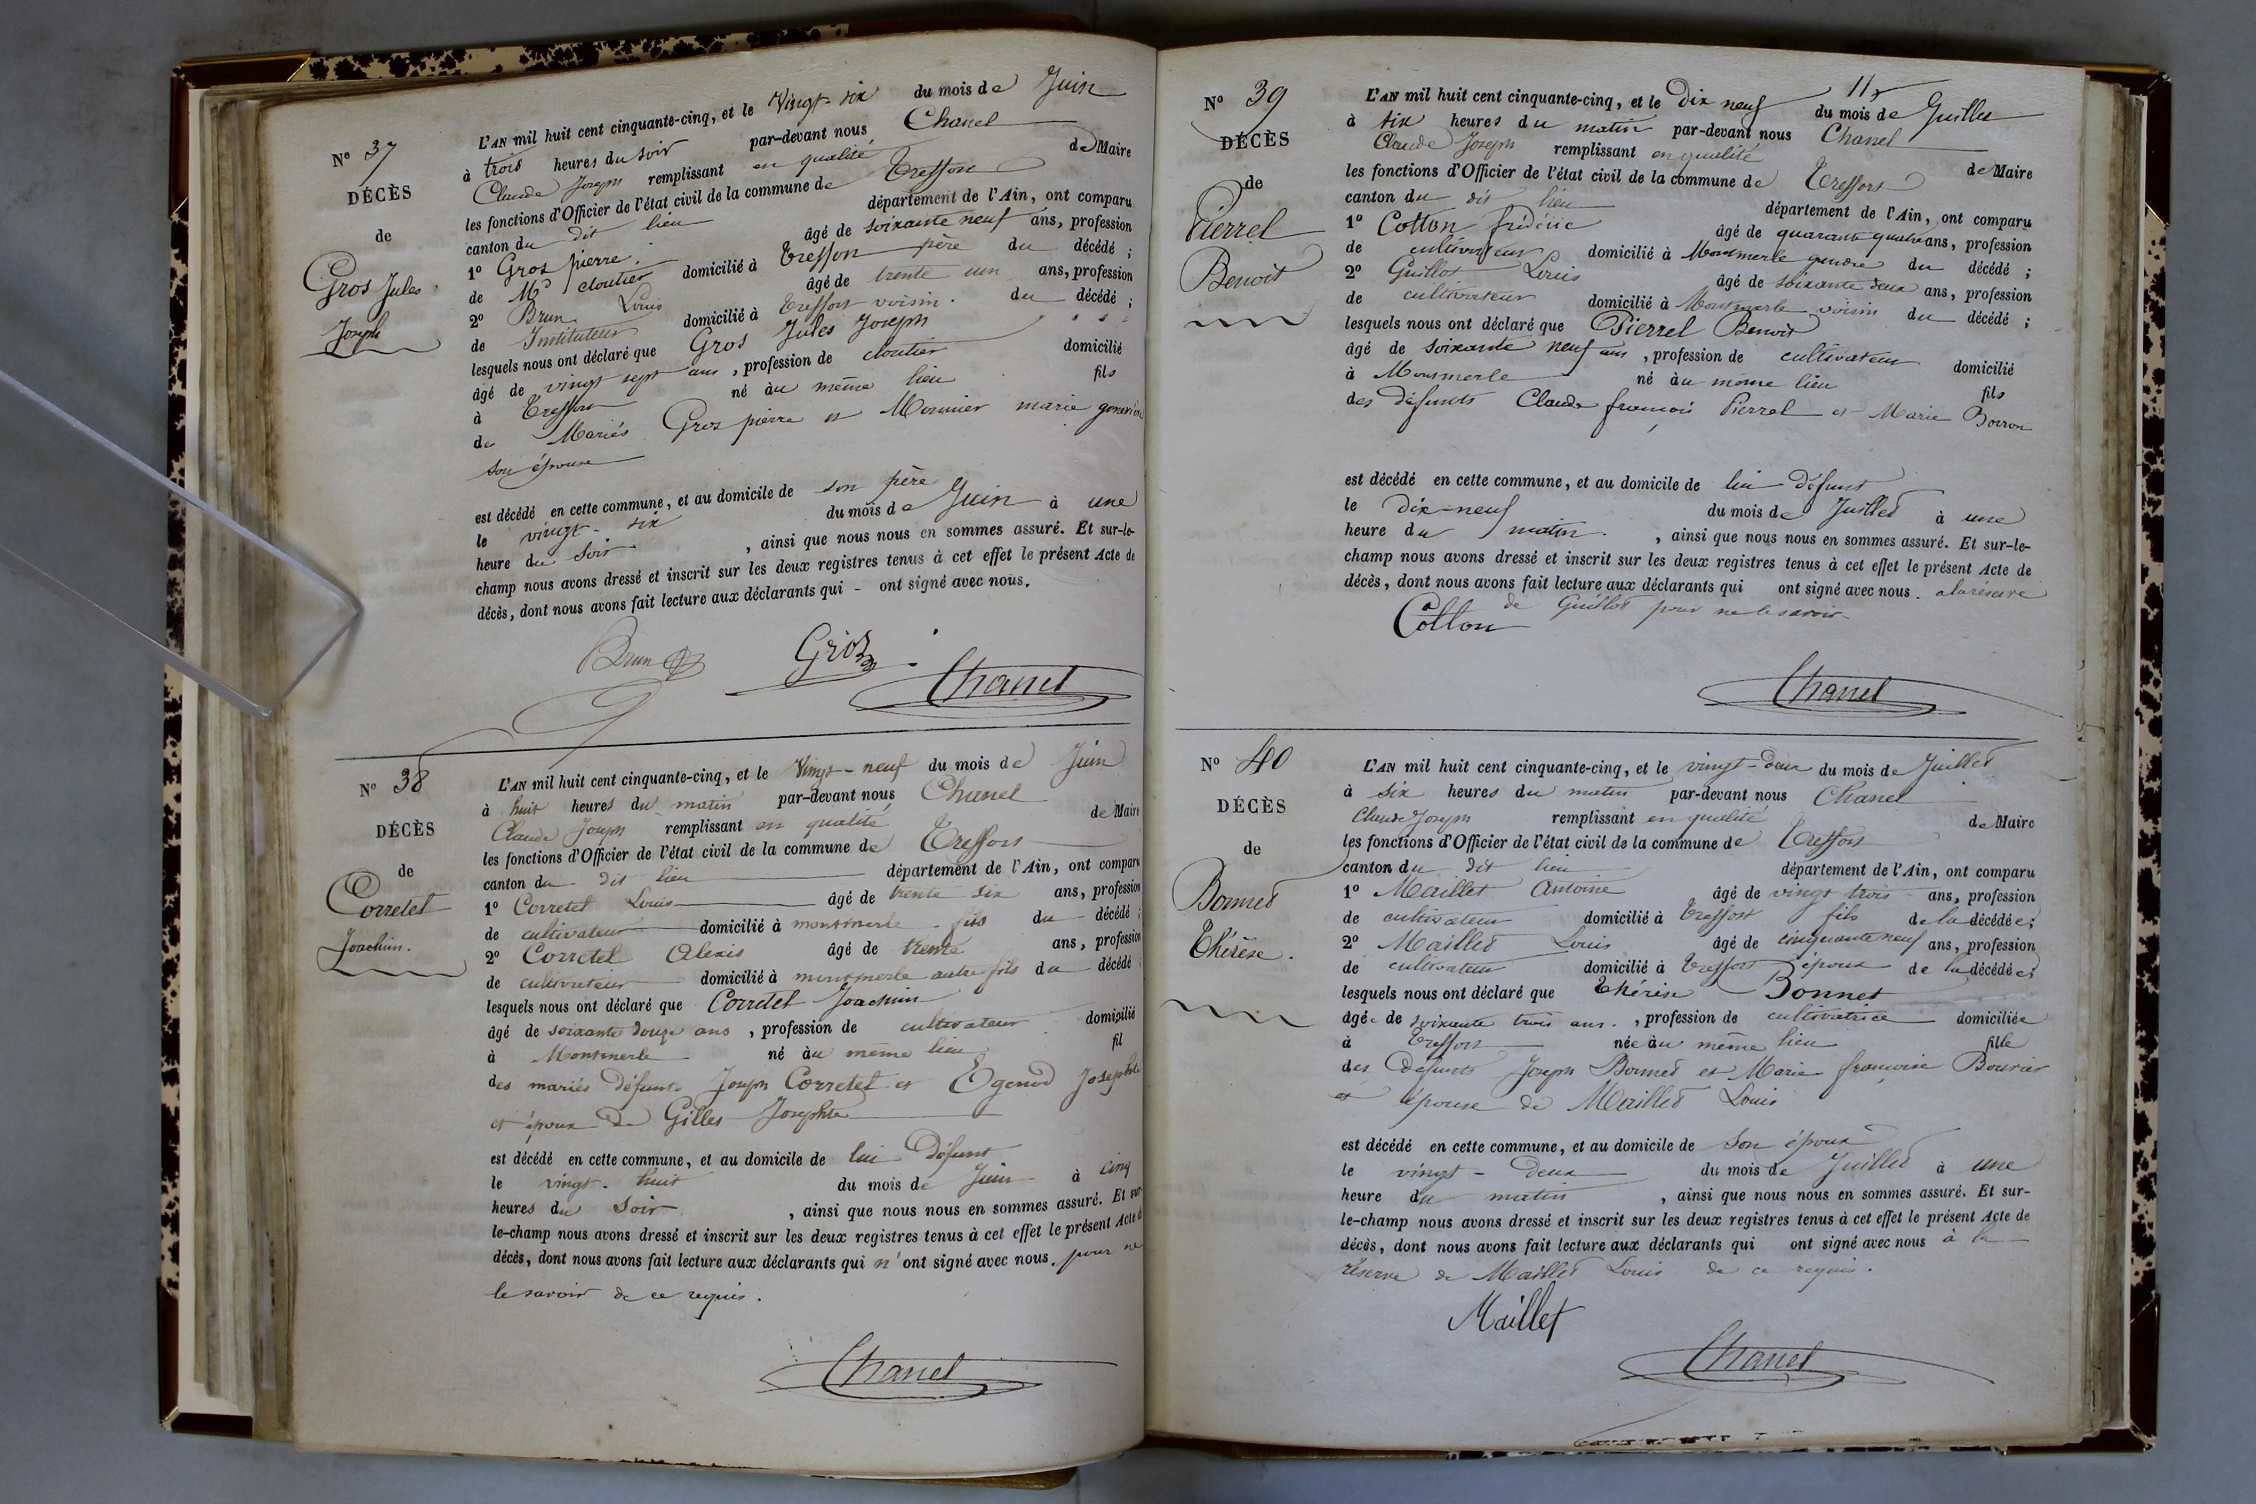 N° 37
DÉCÈS
de
Gros Jules
Joseph
L'AN mil huit cent cinquante-cinq, et le Vingt-six du mois de Juin
à trois heures du soir par-devant nous Chanel
Claude Joseph remplissant en qualité de Maire
les fonctions d'Officier de l'état civil de la commune de Treffort
canton du dit lieu département de l'Ain, ont comparu
1° Gros pierre. âgé de soixante neuf ans, profession
de Md cloutier domicilié à Treffort père du décédé ;
2° Brun Louis âgé de trente un ans, profession
de Instituteur domicilié à Treffort voisin. du décédé ;
lesquels nous ont déclaré que Gros Jules Joseph
âgé de vingt sept ans, profession de cloutier domicilié
à Treffort né au même lieu fils
de Mariés Gros pierre et Monnier marie
son épouse
est décédé en cette commune, et au domicile de son père
le vingt-six du mois de Juin à une
heure du Soir, ainsi que nous nous en sommes assuré. Et sur-le-
champ nous avons dressé et inscrit sur les deux registres tenus à cet effet le présent Acte de
décès, dont nous avons fait lecture aux déclarants qui - ont signé avec nous.
Brun Gros
Chanel
N° 38
DÉCÈS
de
Corretel
Joachim.
L'AN mil huit cent cinquante-cinq, et le Vingt-neuf du mois de Juin
à huit heures du matin par-devant nous Chanel
Claude Joseph remplissant en qualité de Maire
les fonctions d'Officier de l'état civil de la commune de Treffort
canton du dit lieu département de l'Ain, ont comparu
1° Corretel Louis âgé de trente six ans, profession
de cultivateur domicilié à montmerle fils du décédé ;
2° Corretel Alexis âgé de trente ans, profession
de cultivateur domicilié à montmerle autre fils du décédé
lesquels nous ont déclaré que Corretel Joachim
âgé de soixante douze ans, profession de cultivateur domicilié
à Montmerle né au même lieu fil
des mariés défunts Joseph Corretel et Egenod Josephte
et époux de Gilles Josephte
est décédé en cette commune, et au domicile de lui Défunt
le vingt-huit du mois de Juin à cinq
heures du Soir, ainsi que nous nous en sommes assuré. Et sur-
le-champ nous avons dressé et inscrit sur les deux registres tenus à cet effet le présent Acte d
décès, dont nous avons fait lecture aux déclarants qui n'ont signé avec nous. pour ne
le savoir de ce requis.
Chanel
115
N° 39
DÉCÈS
de
Pierrel
Benoit
L'AN mil huit cent cinquante-cinq, et le Dix neuf du mois de Juillet
à six heures du matin par-devant nous Chanel
Claude Joseph remplissant en qualité de Maire
les fonctions d'Officier de l'état civil de la commune de Treffort
canton du dit lieu département de l'Ain, ont comparu
1° Cotton frédéric âgé de quarante quatre ans, profession
de cultivateur domicilié à Montmerle gendre du décédé ;
2° Guillot Louis âgé de soixante deux ans, profession
de cultivateur domicilié à Montmerle voisin du décédé ;
lesquels nous ont déclaré que Pierrel Benoit
âgé de soixante neuf ans, profession de cultivateur domicilié
à Montmerle né au même lieu fils
des défunts Claude françois Pierrel et Marie Borron
est décédé en cette commune, et au domicile de lui défunt
le dix-neuf du mois de Juillet à une
heure du matin., ainsi que nous nous en sommes assuré. Et sur-le-
champ nous avons dressé et inscrit sur les deux registres tenus à cet effet le présent Acte de
décès, dont nous avons fait lecture aux déclarants qui ont signé avec nous. à la réserve
de Guillot pour ne le savoir
Cotton
Chanel
N° 40
DÉCÈS
de
Bonnet
Thérèse.
L'AN mil huit cent cinquante-cinq, et le vingt-deux du mois de Juillet
à six heures du matin par-devant nous Chanel
Claude Joseph remplissant en qualité de Maire
les fonctions d'Officier de l'état civil de la commune de Treffort
canton du dit lieu département de l'Ain, ont comparu
1° Maillet Antoine âgé de vingt trois ans, profession
de cultivateur domicilié à Treffort fils de la décédée ;
2° Maillet Louis âgé de cinquante neuf ans, profession
de cultivateur domicilié à Treffort époux de la décédée ;
lesquels nous ont déclaré que Thérèse Bonnet
âgée de soixante trois ans., profession de cultivatrice domiciliée
à Treffort née au même lieu fille
des Défunts Joseph Bonnet et Marie françoise Bouvier
et épouse de Maillet Louis
est décédé en cette commune, et au domicile de son époux
le vingt-deux du mois de Juillet à une
heure du matin, ainsi que nous nous en sommes assuré. Et sur-
le-champ nous avons dressé et inscrit sur les deux registres tenus à cet effet le présent Acte de
décès, dont nous avons fait lecture aux déclarants qui ont signé avec nous à la
réserve de Maillet Louis de ce requis.
Maillet
Chanel